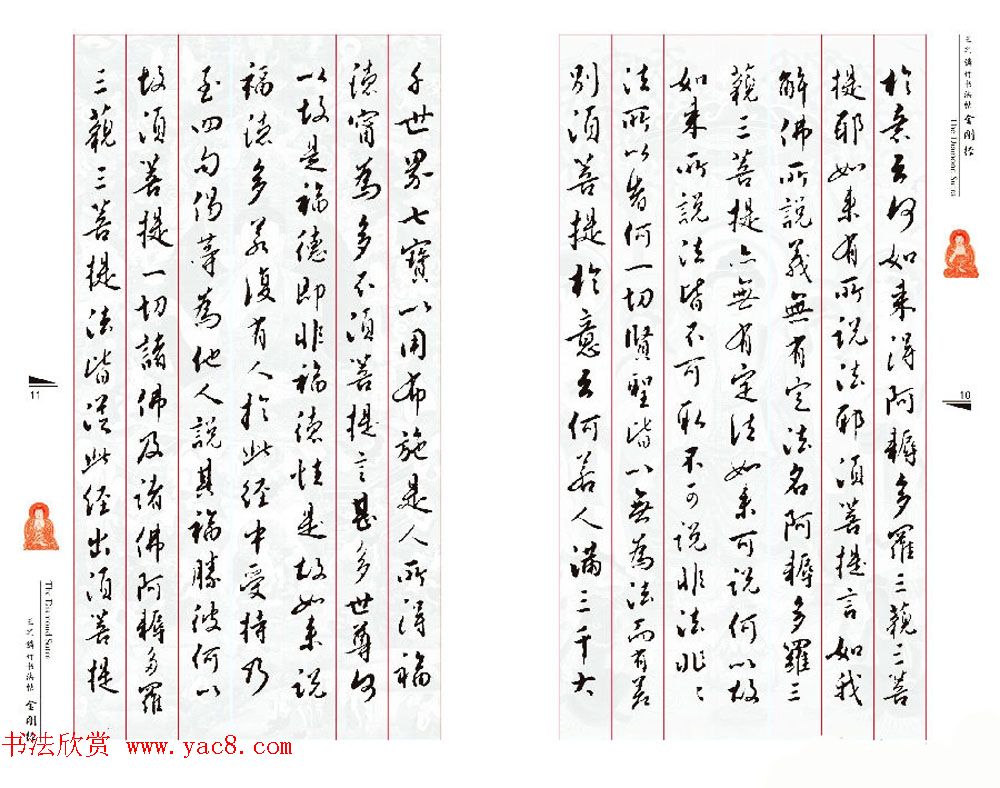 金剛經
The Diamond Sutra
10
於意云何如來得阿耨多羅三藐三菩
提耶如來有所說法耶須菩提言如我
解佛所說義無有定法名阿耨多羅三
藐三菩提亦無有定法如來可說何以故
如來所說法皆不可取不可說非法非〻
法所以者何一切賢聖皆以無為法而有差
別須菩提於意云何若人滿三千大
千世界七寶以用布施是人所得福
德寧為多不須菩提言甚多世尊何
以故是福德即非福德性是故如來說
福德多若復有人於此經中受持乃
至四句偈等為他人說其福勝彼何以
故須菩提一切諸佛及諸佛阿耨多羅
三藐三菩提法皆從此經出須菩提
11
The Diamond Sutra
金剛經
书法欣赏 www.yac8.com